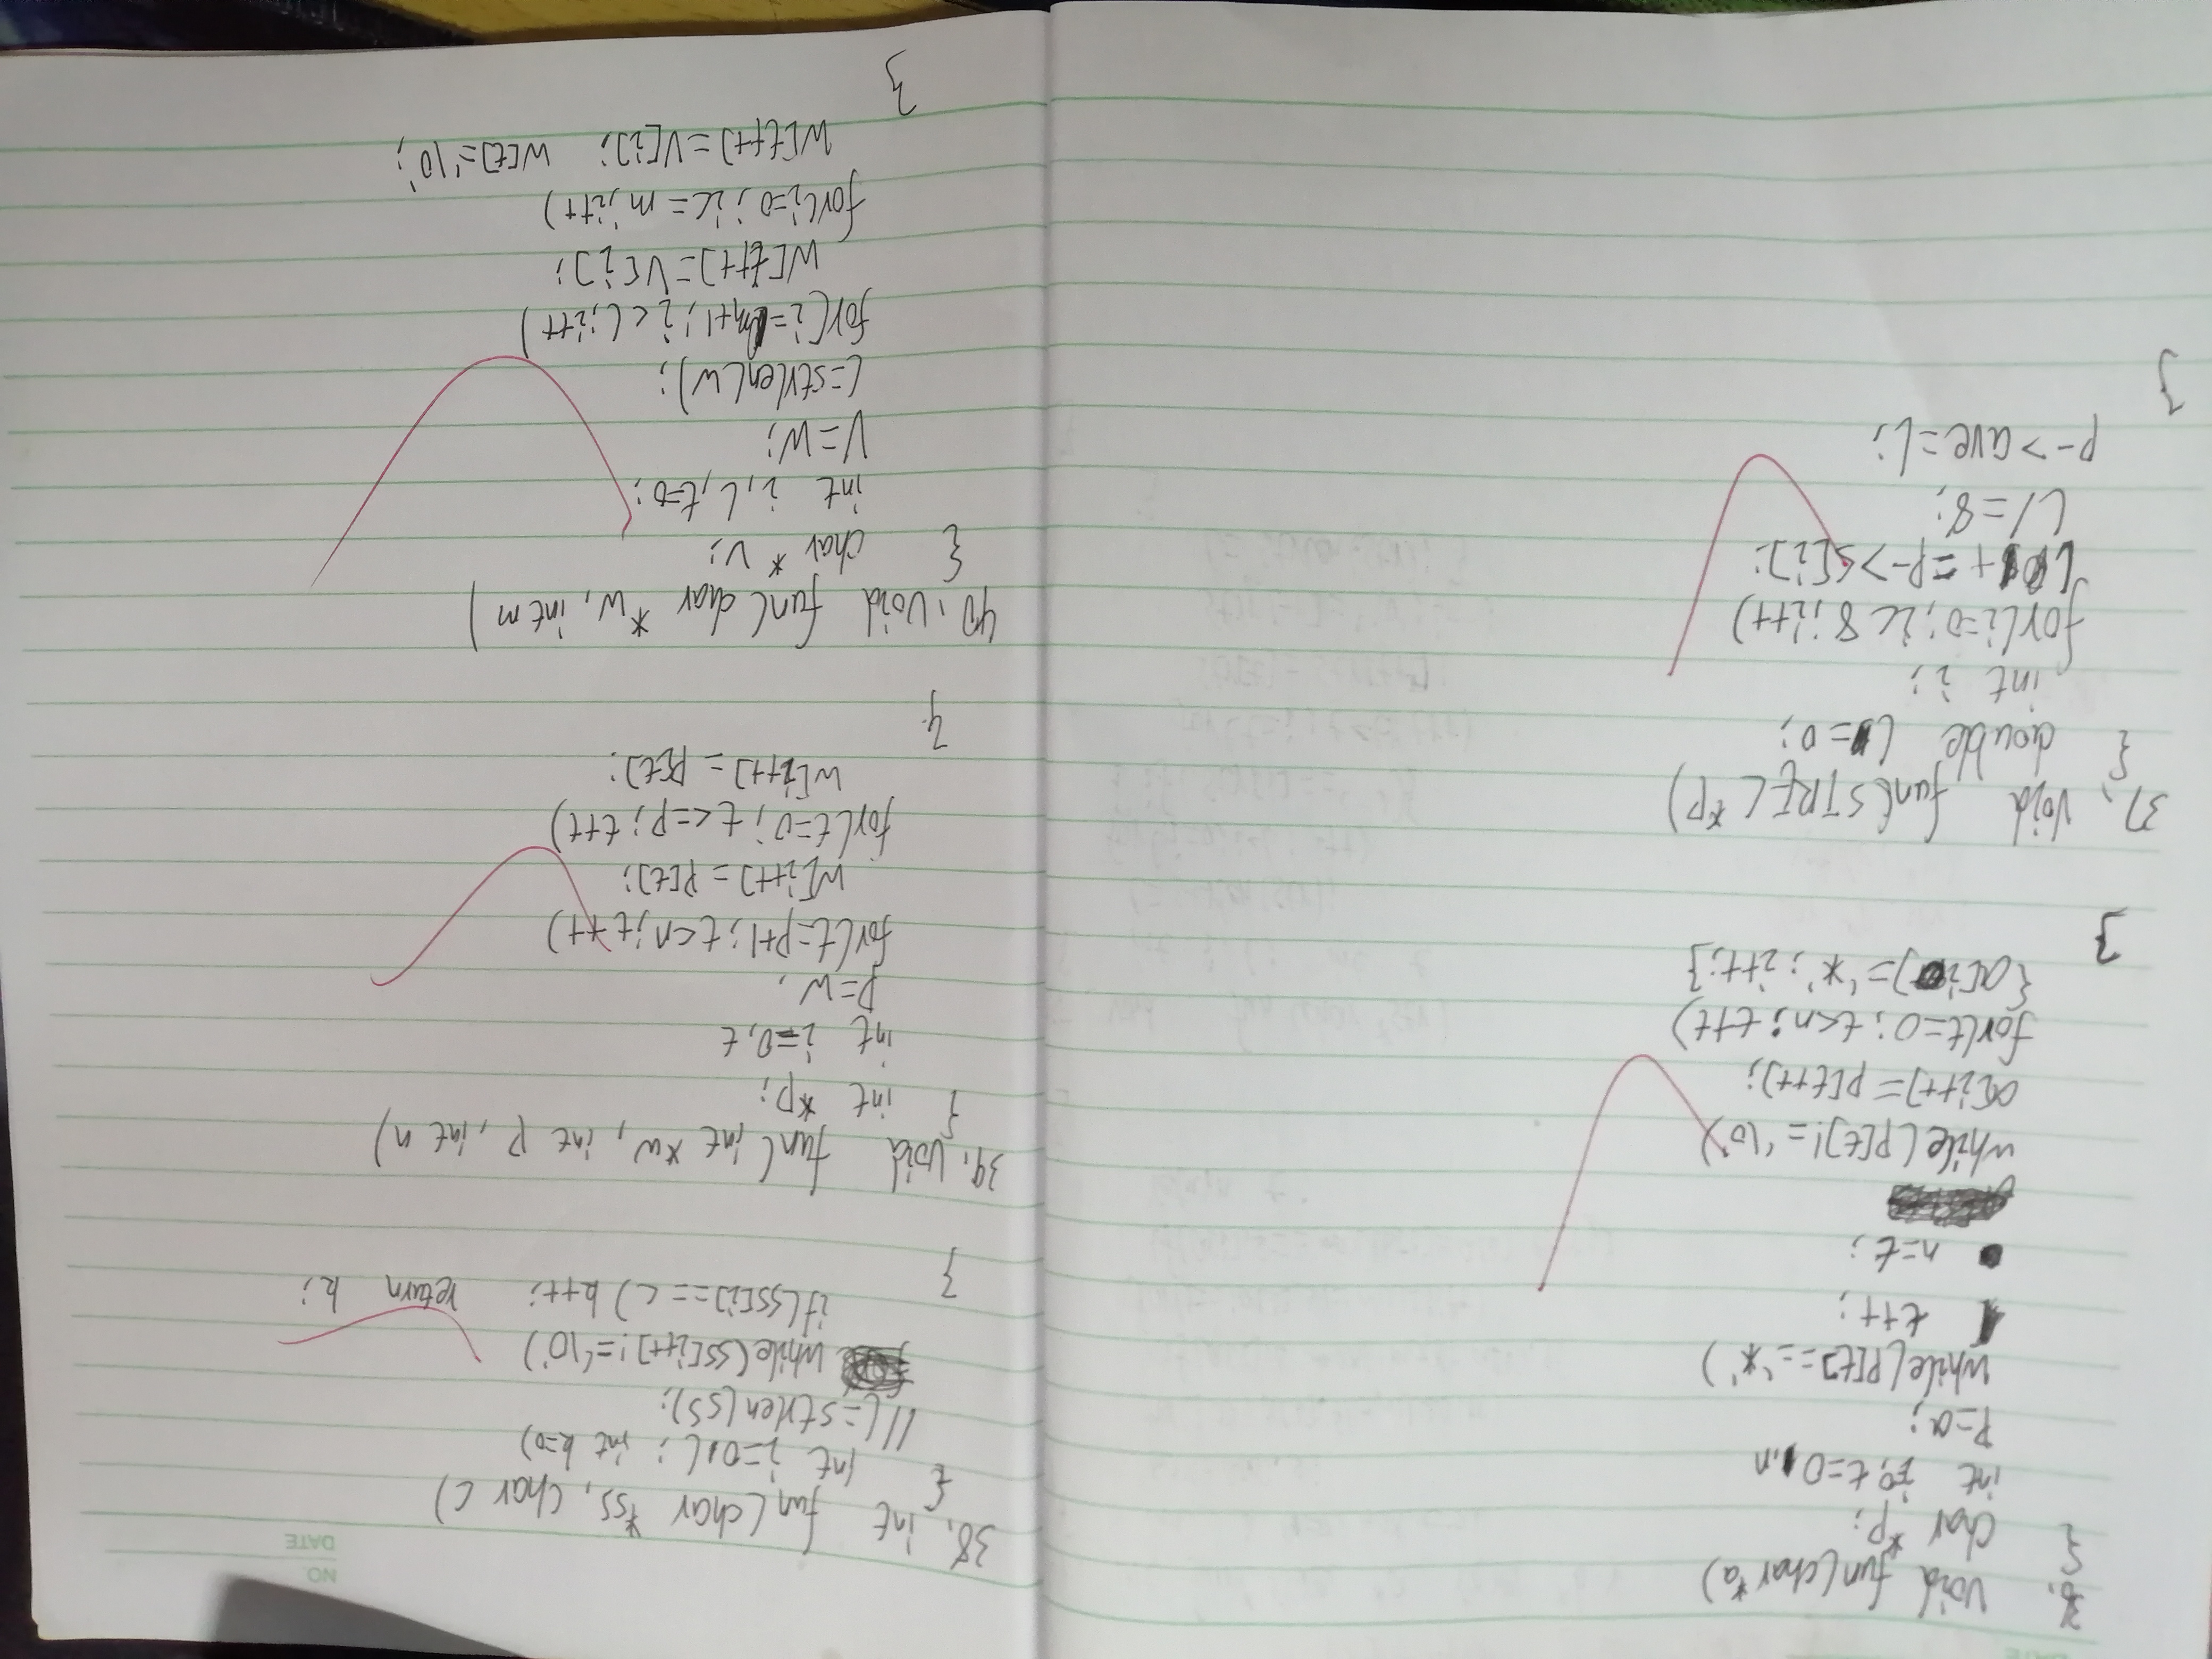 36. void fun(char *a)
{ char *p;
int i, t=0,n
p=a;
while(p[t]=='*')
t++;
n=t;
while(p[t]!='\0')
a[i++]=p[t++];
for(t=0; t<n; t++)
{a[i]='*'; i++;}
}
37. void fun(STREC *p)
{ double l=0;
int i;
for(i=0; i<8; i++)
l+=p->s[i];
l/=8;
p->ave=l;
}
NO.
DATE
38. int fun(char *ss, char c)
{ int i=0,l; int k=0)
//l=strlen(ss);
while(ss[i++]!='\0')
if(ss[i]==c) k++; return k;
}
39. void fun(int *w, int p, int n)
{ int *p;
int i=0,t
p=w,
for(t=p+1; t<n; t++)
w[i++]=p[t];
for(t=0; t<=p; t++)
w[i++]=p[t];
}
40. void fun(char *w, int m)
{ char *v;
int i,l,t=0;
V=W;
l=strlen(w);
for(i=m+1; i<l; i++)
W[t++]=V[i];
for(i=0; i<=m; i++)
W[t++]=V[i]; W[t]='\0';
}
DATE